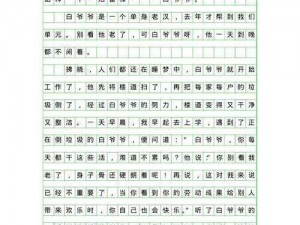 白爷爷是一个单身老汉，去年才帮到我们
单元。别看他老了，可白爷爷呀，他一天到晚
都不闲着。
拂晓，人们都还在睡梦中，白爷爷就开始
工作了，他先将楼道扫了，再把每家每户的垃
圾倒了，经过白爷爷的努力，楼道变得又干净
又整洁。一天早晨，我早起去上学，遇到了正
在倒垃圾的白爷爷，便问道：“白爷爷，你每
天都干这些活，难道不累吗？”他说：“你别看我
老了，身子骨还硬朗着呢！再说，我自己身体
已经不重要了，当你看到你的劳动成果给别人
带来欢乐时，你自己也会快乐。”听了白爷爷的